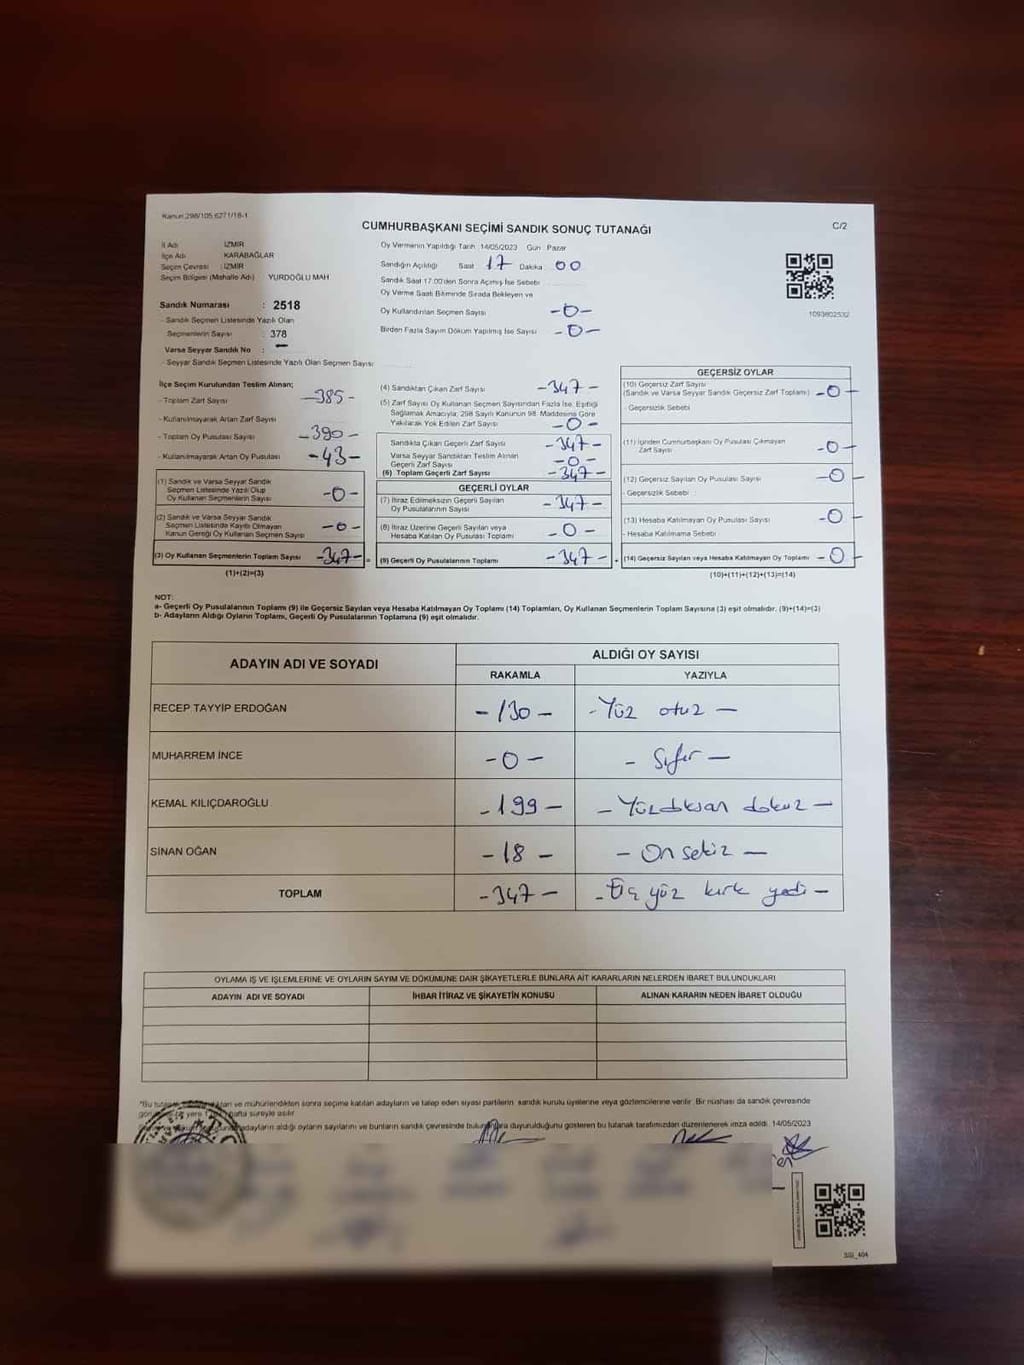 Kanun:298/105,6271/18-1
CUMHURBAŞKANI SEÇİMİ SANDIK SONUÇ TUTANAĞI
C/2
İl Adı : İZMİR
İlçe Adı : KARABAĞLAR
Seçim Çevresi : İZMİR
Seçim Bölgesi (Mahalle Adı) YURDOĞLU MAH
Sandık Numarası : 2518
- Sandık Seçmen Listesinde Yazılı Olan
Seçmenlerin Sayısı : 378
Varsa Seyyar Sandık No : -
- Seyyar Sandık Seçmen Listesinde Yazılı Olan Seçmen Sayısı
Oy Vermenin Yapıldığı Tarih 14/05/2023 Gün Pazar
Sandığın Açıldığı Saat 17 Dakika 00
Sandık Saat 17.00'den Sonra Açılmış İse Sebebi
Oy Verme Saati Bitiminde Sırada Bekleyen ve
Oy Kullandırılan Seçmen Sayısı -0-
Birden Fazla Sayım Döküm Yapılmış İse Sayısı -0-
1093802532
İlçe Seçim Kurulundan Teslim Alınan;
- Toplam Zarf Sayısı -385-
- Kullanılmayarak Artan Zarf Sayısı
- Toplam Oy Pusulası Sayısı -390-
- Kullanılmayarak Artan Oy Pusulası -43-
(1) Sandık ve Varsa Seyyar Sandık
Seçmen Listesinde Yazılı Olup
Oy Kullanan Seçmenlerin Sayısı -0-
(2) Sandık ve Varsa Seyyar Sandık
Seçmen Listesinde Kayıtlı Olmayan
Kanun Gereği Oy Kullanan Seçmen Sayısı -0-
(3) Oy Kullanan Seçmenlerin Toplam Sayısı -347-
(1)+(2)=(3)
(4) Sandıktan Çıkan Zarf Sayısı -347-
(5) Zarf Sayısı Oy Kullanan Seçmen Sayısından Fazla İse, Eşitliği
Sağlamak Amacıyla, 298 Sayılı Kanunun 98. Maddesine Göre
Yakılarak Yok Edilen Zarf Sayısı -0-
Sandıkta Çıkan Geçerli Zarf Sayısı -347-
Varsa Seyyar Sandıktan Teslim Alınan
Geçerli Zarf Sayısı -0-
(6) Toplam Geçerli Zarf Sayısı -347-
GEÇERLİ OYLAR
(7) İtiraz Edilmeksizin Geçerli Sayılan
Oy Pusulalarının Sayısı -347-
(8) İtiraz Üzerine Geçerli Sayılan veya
Hesaba Katılan Oy Pusulası Toplamı -0-
(9) Geçerli Oy Pusulalarının Toplamı -347-
GEÇERSİZ OYLAR
(10) Geçersiz Zarf Sayısı
(Sandık ve Varsa Seyyar Sandık Geçersiz Zarf Toplamı) -0-
- Geçersizlik Sebebi
(11) İçinden Cumhurbaşkanı Oy Pusulası Çıkmayan
Zarf Sayısı -0-
(12) Geçersiz Sayılan Oy Pusulası Sayısı -0-
- Geçersizlik Sebebi
(13) Hesaba Katılmayan Oy Pusulası Sayısı -0-
- Hesaba Katılmama Sebebi
(14) Geçersiz Sayılan veya Hesaba Katılmayan Oy Toplamı -0-
(10)+(11)+(12)+(13)=(14)
NOT:
a- Geçerli Oy Pusulalarının Toplamı (9) ile Geçersiz Sayılan veya Hesaba Katılmayan Oy Toplamı (14) Toplamları, Oy Kullanan Seçmenlerin Toplam Sayısına (3) eşit olmalıdır. (9)+(14)=(3)
b- Adayların Aldığı Oyların Toplamı, Geçerli Oy Pusulalarının Toplamına (9) eşit olmalıdır.
ADAYIN ADI VE SOYADI
ALDIĞI OY SAYISI
RAKAMLA YAZIYLA
RECEP TAYYİP ERDOĞAN -130- -Yüz otuz-
MUHARREM İNCE -0- -Sıfır-
KEMAL KILIÇDAROĞLU -199- -Yüzdoksan dokuz-
SİNAN OĞAN -18- -On sekiz-
TOPLAM -347- -Üç yüz kırk yedi-
OYLAMA İŞ VE İŞLEMLERİNE VE OYLARIN SAYIM VE DÖKÜMÜNE DAİR ŞİKAYETLERLE BUNLARA AİT KARARLARIN NELERDEN İBARET BULUNDUKLARI
ADAYIN ADI VE SOYADI İHBAR İTİRAZ VE ŞİKAYETİN KONUSU ALINAN KARARIN NEDEN İBARET OLDUĞU
"Bu ve mühürlendikten sonra seçime katılan adayların ve talep eden siyasi partilerin sandık kurulu üyelerine veya gözlemcilerine verilir. Bir nüshası da sandık çevresinde
yere hafta süreyle asılır
adayların aldığı oyların sayılarını ve bunların sandık çevresinde duyurulduğunu gösteren bu tutanak tarafımızdan düzenlenerek imza edildi. 14/05/2023